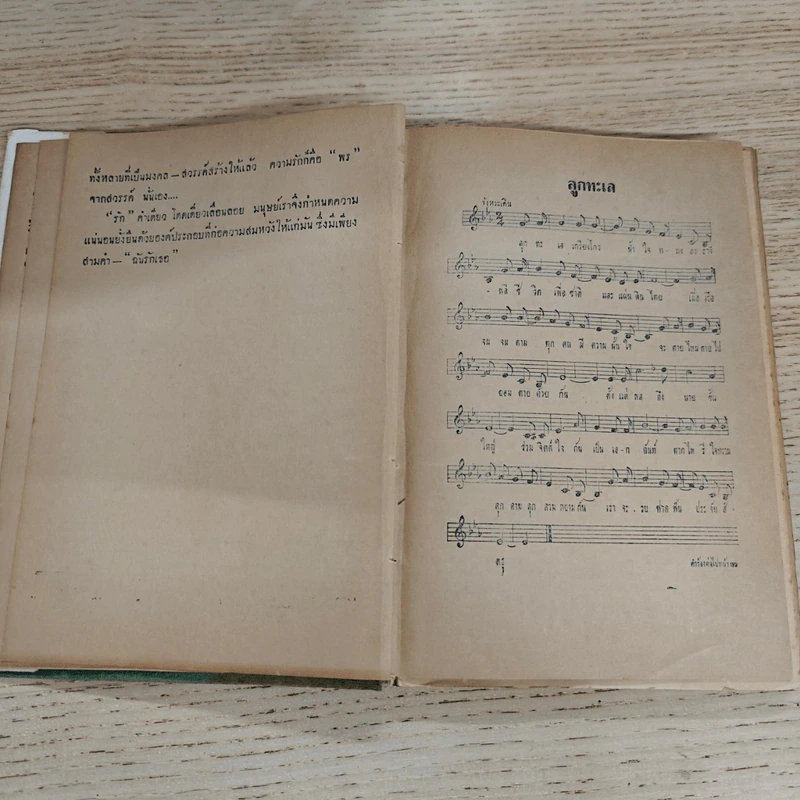 ทั้งหลายที่เป็นมงคล – สวรรค์สร้างให้แล้ว ความรักก็คือ “พร”
จากสวรรค์ นั่นเอง...
“รัก” คำเดียว โดดเดี่ยวเลื่อนลอย มนุษย์เราจึงกำหนดความ
แน่นอนยั่งยืนด้วยองค์ประกอบที่ก่อความสมหวังให้แก่มัน ซึ่งมีเพียง
สามคำ – “ฉันรักเธอ”
ลูกทะเล
จังหวะ
ลูก ทะ เล เกรียงไกร
ชี วิต เพื่อ ชาติ และ แผ่น ดิน ไทย เมื่อ เรือ
จม จม ตาม ทุก คน มี ความ มั่น ใจ จะ ตาย ไหน ตาย ได้
ยอม ตาย ด้วย กัน ตั้ง แต่ พล ถึง นาย ชั้น
ใหญ่ ร่วม จิตต์ ใจ กัน เป็น เอ-ก ฉันท์ หาก ไพ รี ใจทราม
คุก คาม ลุก ลาม หยาม กัน เรา จะ รบ ฟาด ฟัน ประ จัน สั-
ตรู